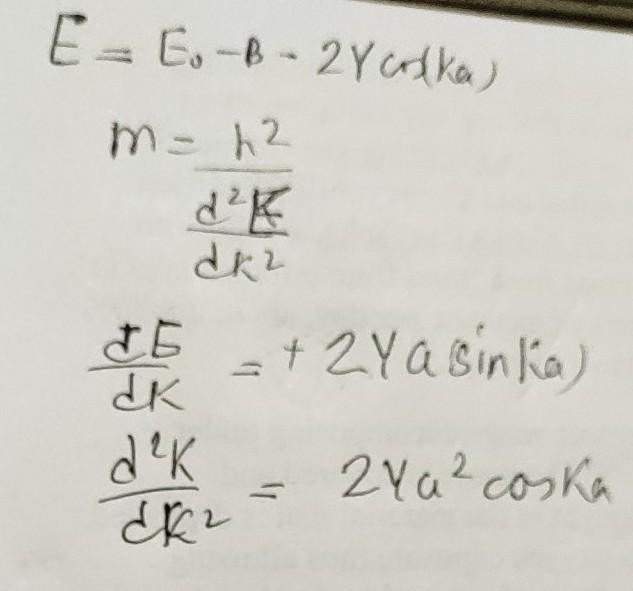 E = E₀ - B - 2γ cos(Ka)
m = h²
d²E
dK²
dE = + 2γa sin Ka)
dK
d²K = 2γa² cos Ka
dK²